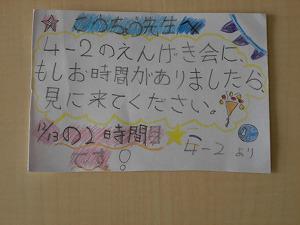 こうちょう先生へ
4-2のえんげき会に、
もしお時間がありましたら、
見に来てください。
12/13の2時間目
です!
4-2より